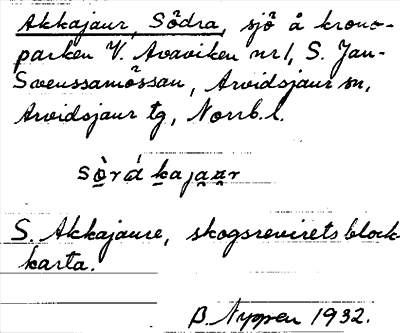 Akkajaur, Södra, sjö å krono-
parken V. Avaviken nr 1, S. Jan-
Svenssamössan, Arvidsjaur sn,
Arvidsjaur tg, Norrb. l.
S. Akkajaure, skogsrevirets block-
karta.
B. Nyppen 1932.